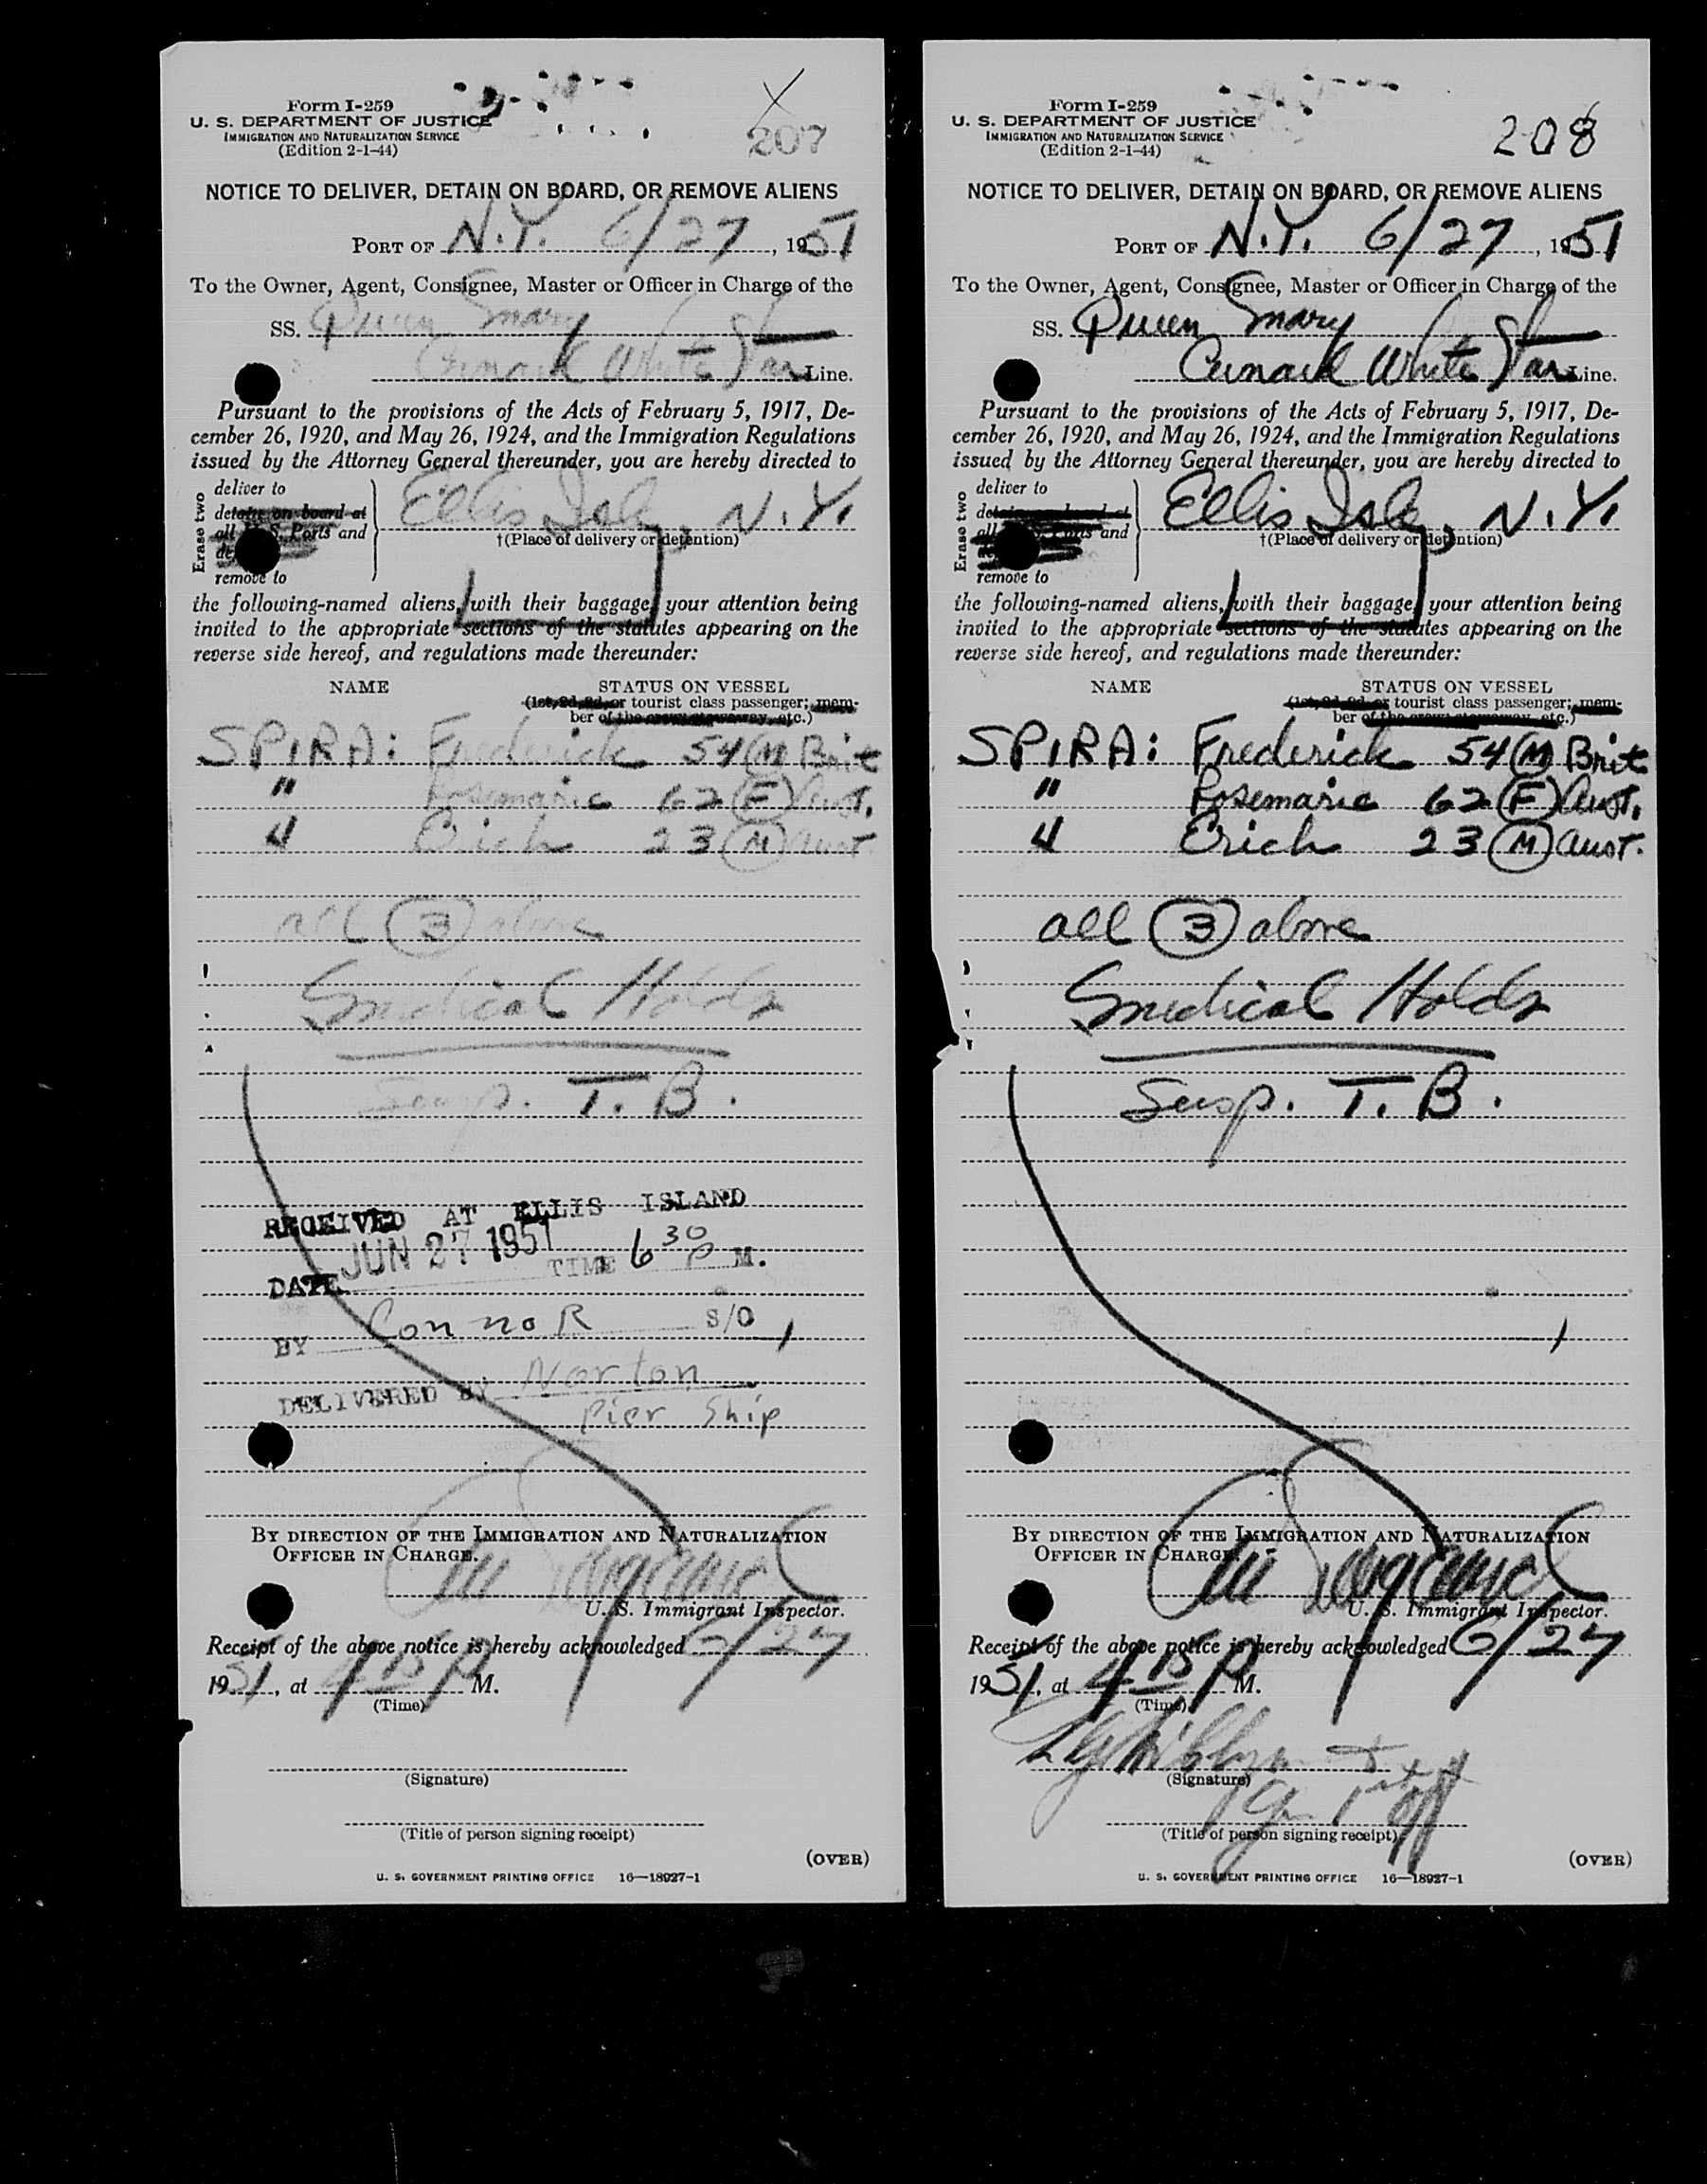 Form I-259
U. S. DEPARTMENT OF JUSTICE
IMMIGRATION AND NATURALIZATION SERVICE
(Edition 2-1-44)
X
207
NOTICE TO DELIVER, DETAIN ON BOARD, OR REMOVE ALIENS
PORT OF N.Y. 6/27, 1951
To the Owner, Agent, Consignee, Master or Officer in Charge of the
SS. Queen Mary
Cunard White Star Line.
Pursuant to the provisions of the Acts of February 5, 1917, De-
cember 26, 1920, and May 26, 1924, and the Immigration Regulations
issued by the Attorney General thereunder, you are hereby directed to
Erase two
deliver to
detain on board at
all U. S. Ports and
remove to
Ellis Isle, N.Y.
†(Place of delivery or detention)
the following-named aliens, with their baggage, your attention being
invited to the appropriate sections of the statutes appearing on the
reverse side hereof, and regulations made thereunder:
NAME STATUS ON VESSEL
(1st, 2d, 3d, or tourist class passenger; mem-
ber of the crew, stowaway, etc.)
SPIRA: Frederick 54 (M) Brit
" Rosemarie 62 (F) Aust.
" Erich 23 (M) Aust.
all (3) above
Medical Holds
Susp. T.B.
RECEIVED AT ELLIS ISLAND
DATE JUN 27 1951 TIME 6 30 P M.
BY Connor S/O
DELIVERED BY Norton
Pier Ship
BY DIRECTION OF THE IMMIGRATION AND NATURALIZATION
OFFICER IN CHARGE.
U. S. Immigrant Inspector.
Receipt of the above notice is hereby acknowledged 6/27
1951, at 4 15 P M.
(Time)
(Signature)
(Title of person signing receipt)
(OVER)
U. S. GOVERNMENT PRINTING OFFICE 16—18927-1
Form I-259
U. S. DEPARTMENT OF JUSTICE
IMMIGRATION AND NATURALIZATION SERVICE
(Edition 2-1-44)
208
NOTICE TO DELIVER, DETAIN ON BOARD, OR REMOVE ALIENS
PORT OF N.Y. 6/27, 1951
To the Owner, Agent, Consignee, Master or Officer in Charge of the
SS. Queen Mary
Cunard White Star Line.
Pursuant to the provisions of the Acts of February 5, 1917, De-
cember 26, 1920, and May 26, 1924, and the Immigration Regulations
issued by the Attorney General thereunder, you are hereby directed to
Erase two
deliver to
detain on board at
all U. S. Ports and
remove to
Ellis Isle, N.Y.
†(Place of delivery or detention)
the following-named aliens, with their baggage, your attention being
invited to the appropriate sections of the statutes appearing on the
reverse side hereof, and regulations made thereunder:
NAME STATUS ON VESSEL
(1st, 2d, 3d, or tourist class passenger; mem-
ber of the crew, stowaway, etc.)
SPIRA: Frederick 54 (M) Brit
" Rosemarie 62 (F) Aust.
" Erich 23 (M) Aust.
all (3) above
Medical Holds
Susp. T.B.
BY DIRECTION OF THE IMMIGRATION AND NATURALIZATION
OFFICER IN CHARGE.
U. S. Immigrant Inspector.
Receipt of the above notice is hereby acknowledged 6/27
1951, at 4 15 P M.
(Time)
(Signature)
(Title of person signing receipt)
(OVER)
U. S. GOVERNMENT PRINTING OFFICE 16—18927-1